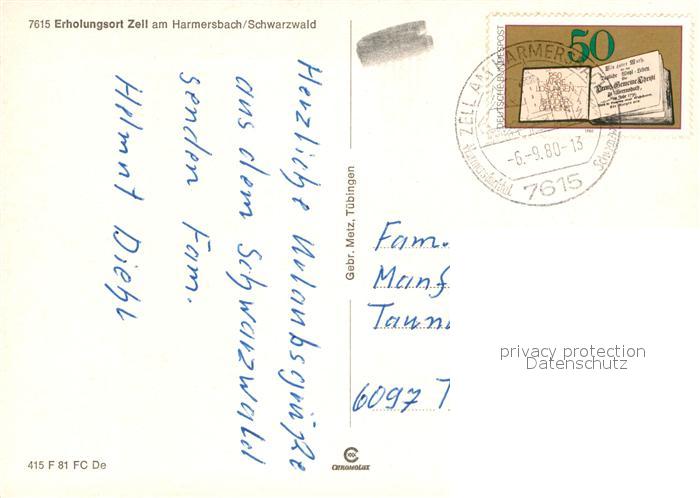 7615 Erholungsort Zell am Harmersbach/Schwarzwald
Herzliche Urlaubsgrüße
aus dem Schwarzwald
senden Fam.
Helmut Diehl
Gebr. Metz, Tübingen
415 F 81 FC De
CHROMOLUX
50
DEUTSCHE BUNDESPOST
250
JAHRE
LOSUNGEN
DER
BRÜDER-
1980
ZELL AM HARMERSBA
-6.-9.80-13
7615
Fam.
Manf
Taun
6097 T
privacy protection
Datenschutz